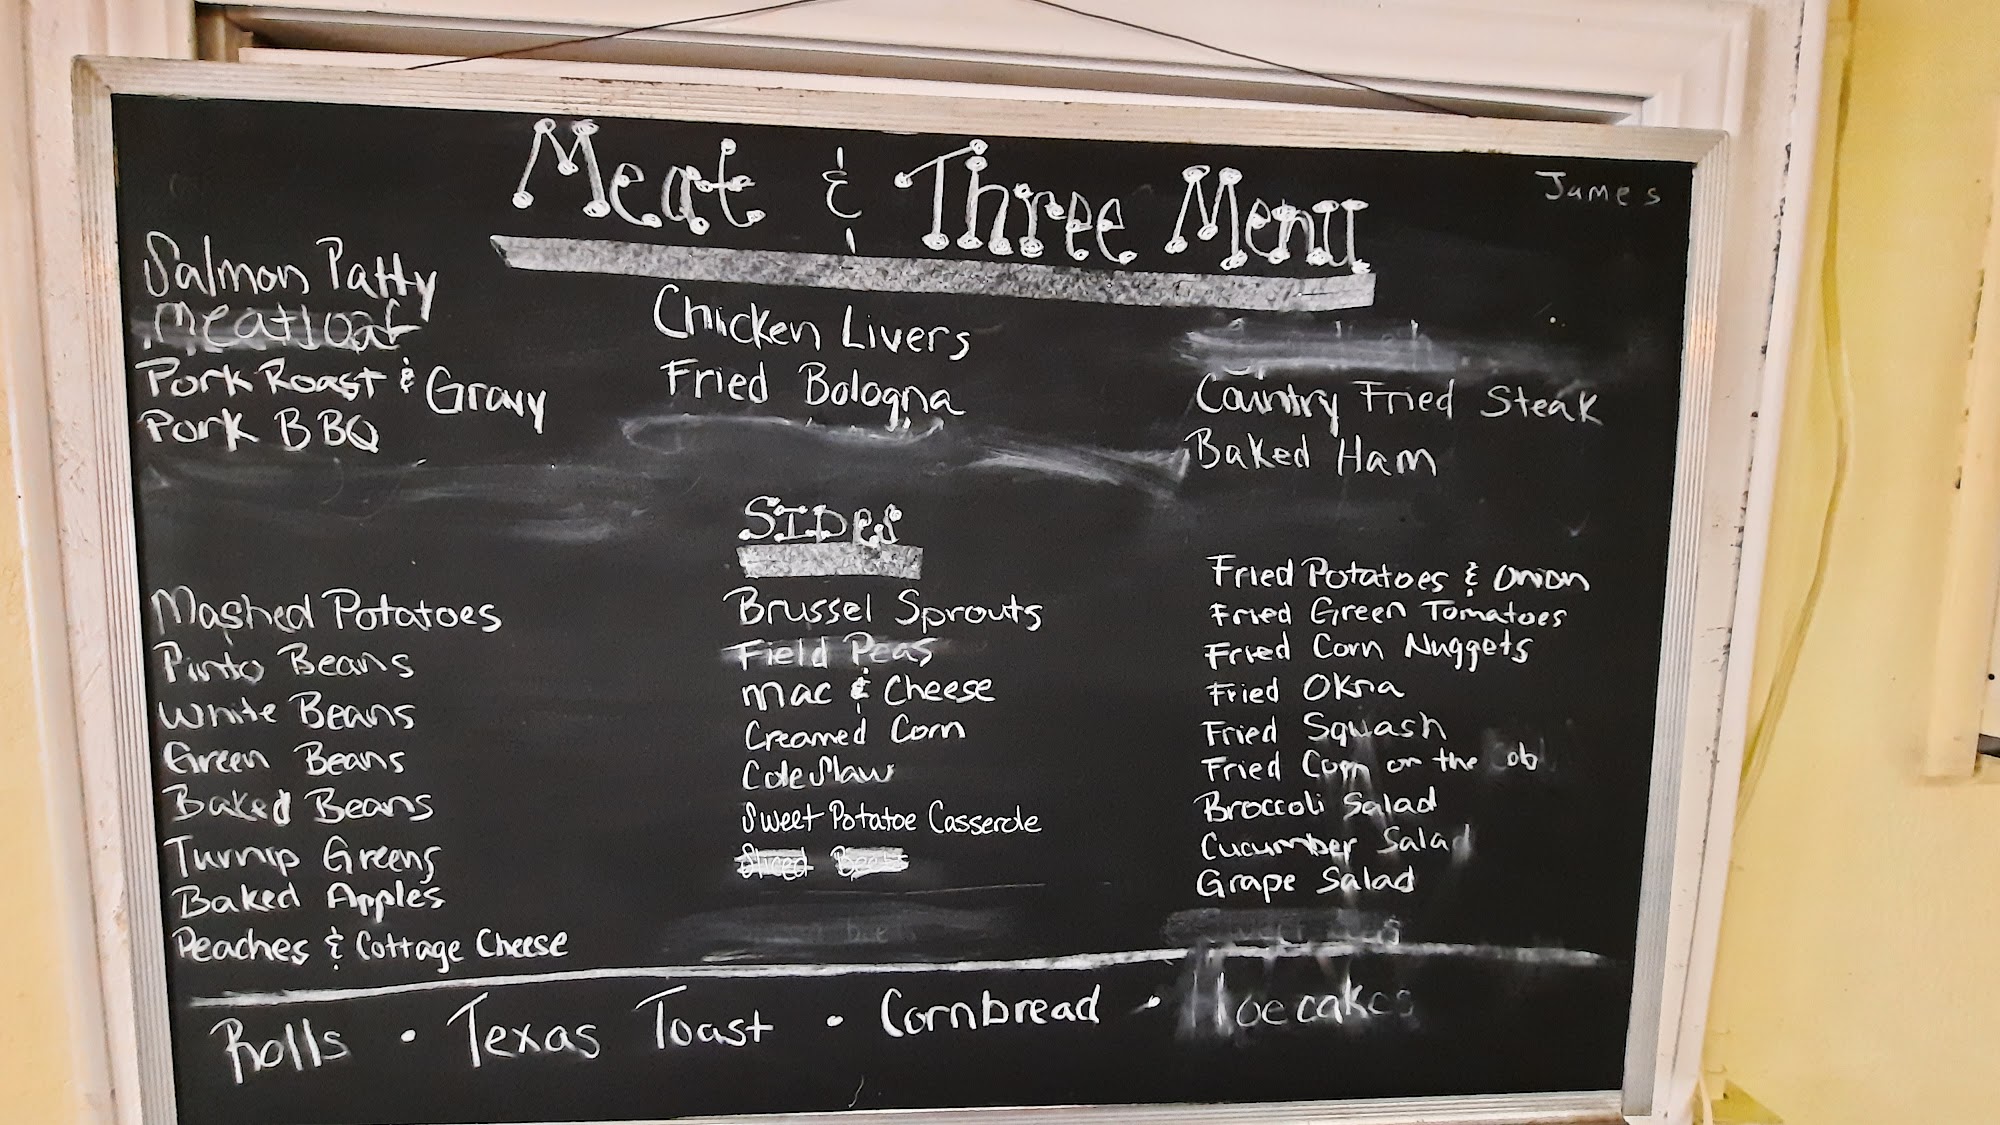 Meat & Three Menu
James
Salmon Patty
Meatloaf
Pork Roast & Gravy
Pork BBQ
Chicken Livers
Fried Bologna
Country Fried Steak
Baked Ham
SIDes
Mashed Potatoes
Pinto Beans
White Beans
Green Beans
Baked Beans
Turnip Greens
Baked Apples
Peaches & Cottage Cheese
Brussel Sprouts
Field Peas
Mac & Cheese
Creamed Corn
Cole Slaw
Sweet Potatoe Casserole
Sliced Beets
Fried Potatoes & Onion
Fried Green Tomatoes
Fried Corn Nuggets
Fried Okra
Fried Squash
Fried Corn on the Cob
Broccoli Salad
Cucumber Salad
Grape Salad
Rolls • Texas Toast • Cornbread • Hoecakes